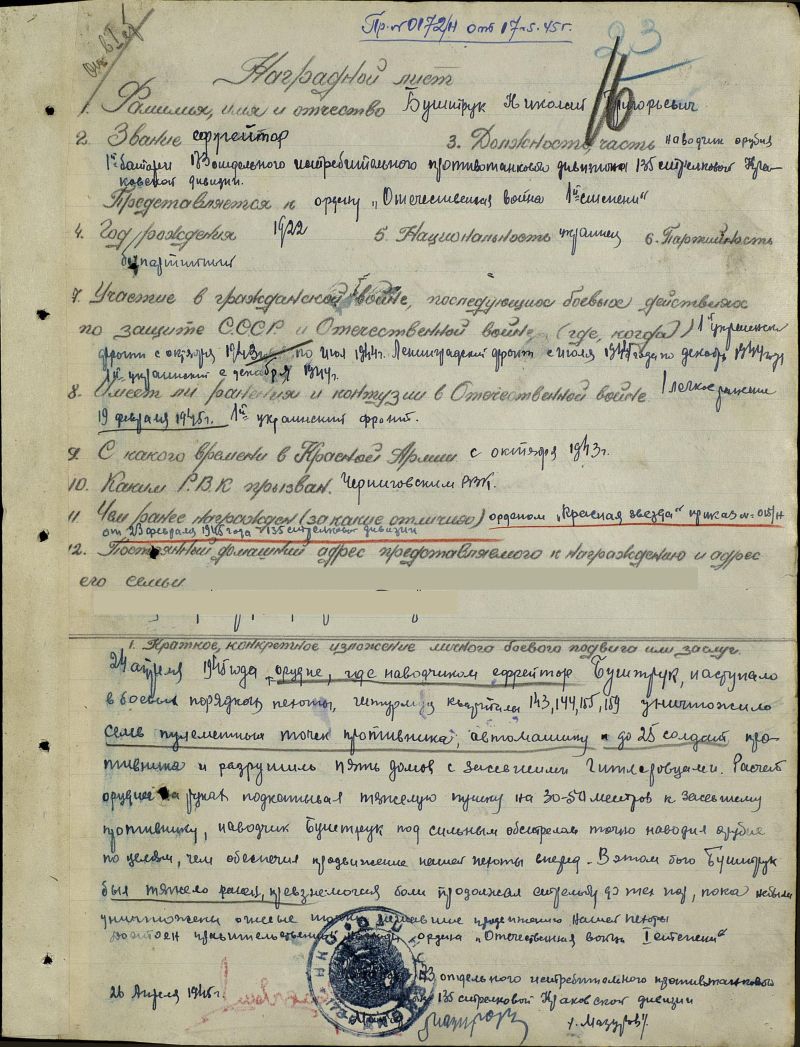 Пр. № 0172/н от 17.5.45 г.
23
16
Наградной лист
1. Фамилия, имя и отчество Буштрук Николай Григорьевич
2. Звание ефрейтор 3. Должность, часть наводчик орудия
1й батареи 173 отдельного истребительного противотанкового дивизиона 135 стрелковой Кра-
ковской дивизии.
Представляется к ордену „Отечественная война 1й степени"
4. Год рождения 1922 5. Национальность украинец 6. Партийность
безпартийный
7. Участие в гражданской войне, последующих боевых действиях
по защите СССР и Отечественной войне (где, когда) 1й украинский
фронт с октября 1943 по июль 1944г. Ленинградский фронт с июля 1944 года по декабрь 1944 года
1й украинский с декабря 1944г.
8. Имеет ли ранения и контузии в Отечественной войне 1 легкое ранение
19 февраля 1945г. 1й украинский фронт.
9. С какого времени в Красной Армии с октября 1943г.
10. Каким Р.В.К призван. Черниговским РВК.
11. Чем ранее награжден (за какие отличия) орденом „Красная звезда" приказ №
от 23 февраля 1945 года 135 стрелковой дивизии
12. Постоянный домашний адрес представляемого к награждению и адрес
его семьи
1. Краткое, конкретное изложение личного боевого подвига или заслуг.
24 апреля 1945 года орудие, где наводчиком ефрейтор Буштрук, наступало
в боевых порядках пехоты, штурмуя кварталы 143, 144, 155, 159 уничтожило
семь пулеметных точек противника, автомашину и до 25 солдат про-
тивника и разрушил пять домов с засевшими гитлеровцами. Расчет
орудия на руках подкатывая тяжелую пушку на 30-50 метров к засевшему
противнику, наводчик Буштрук под сильным обстрелом точно наводил орудие
по целям, чем обеспечил продвижение нашей пехоты вперед. В этом бою Буштрук
был тяжело ранен, превзнемогая боли продолжал стрельбу до тех пор, пока не были
уничтожены огневые точки мешавшие продвижению нашей пехоты
Достоен правительственной награды ордена „Отечественная война I степени"
173 отдельного истребительного противотанкового
135 стрелковой Краковской дивизии
26 Апреля 1945г. Майор /. Мазуров /.